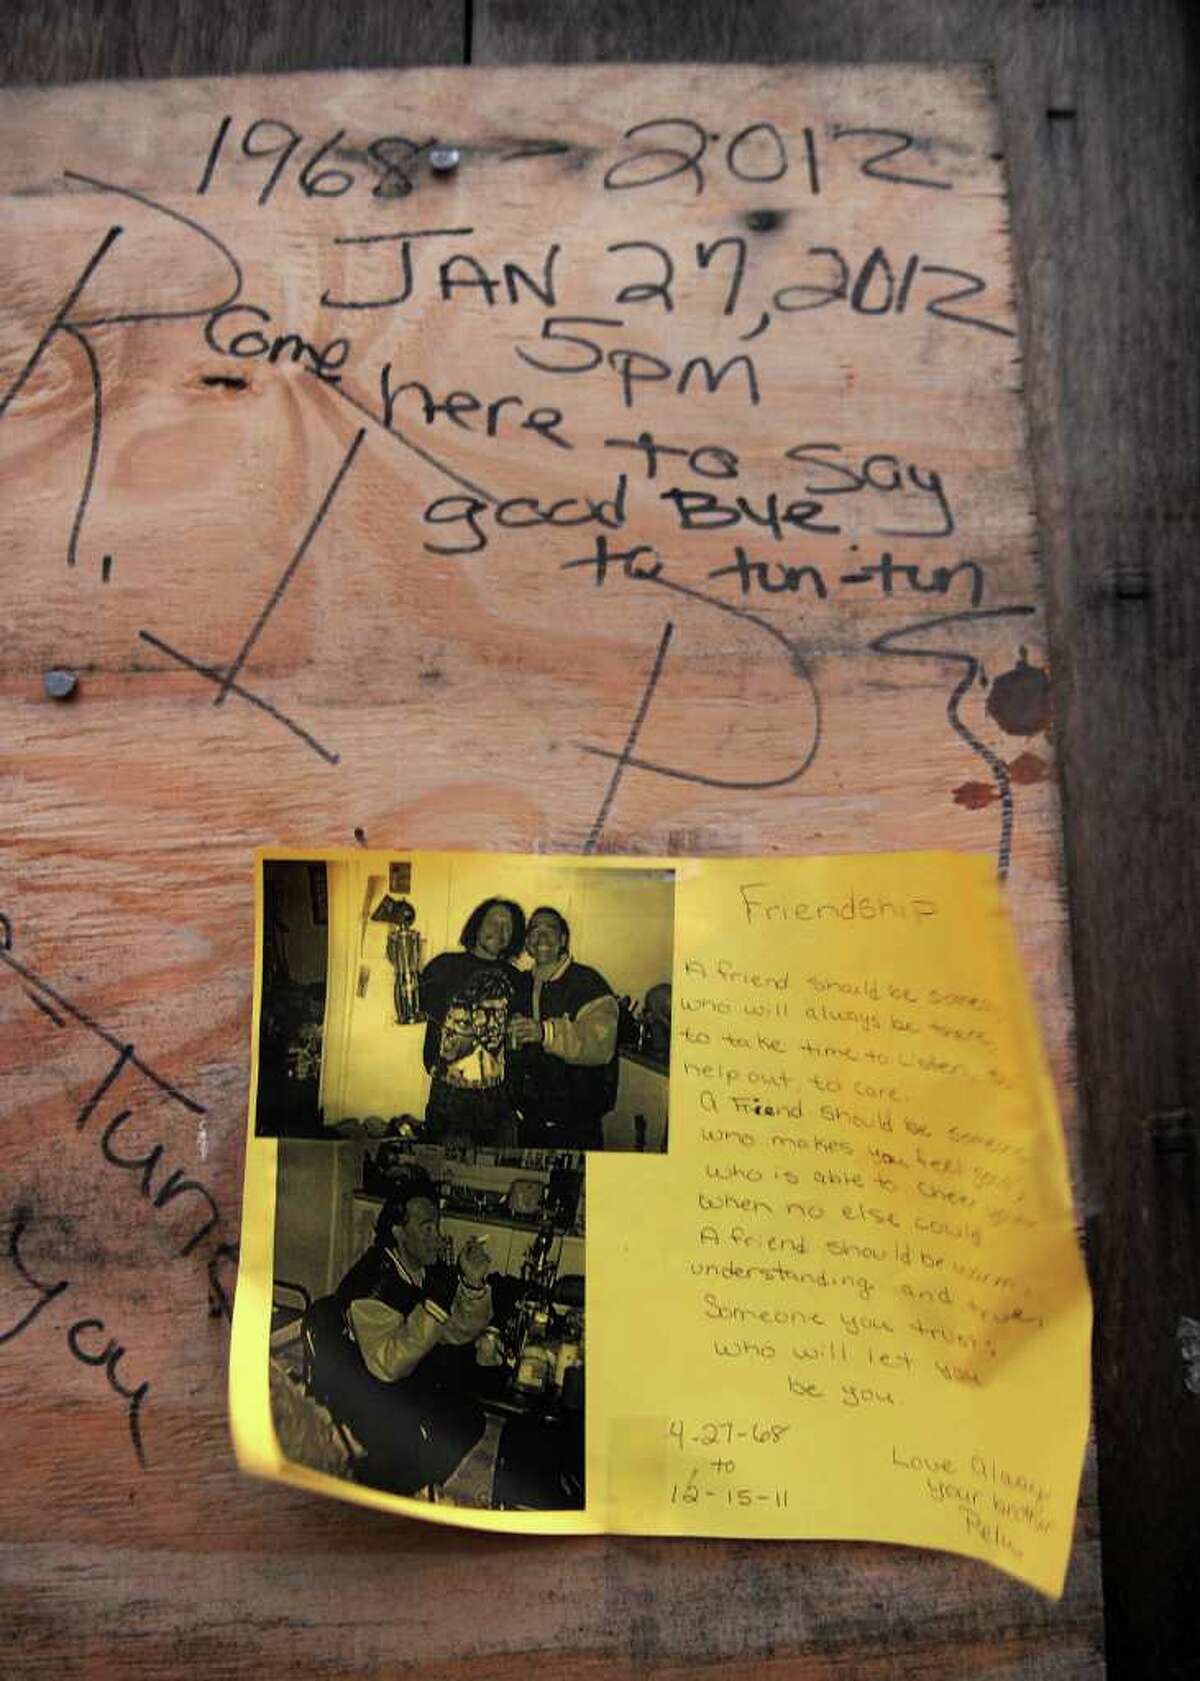 1968 - 2012
JAN 27, 2012
5pm
Come here to say
good Bye
to tun-tun
R. I P
Tun
you
Friendship
A friend should be
who will always be there,
to take time to Listen,
help out, to care.
A Friend should be someone
who makes you feel good,
who is able to cheer
when no else could
A friend should be warm,
understanding and
Someone you trust,
who will let you
be you
4-27-68
to
12-15-11
Love Always
your brother